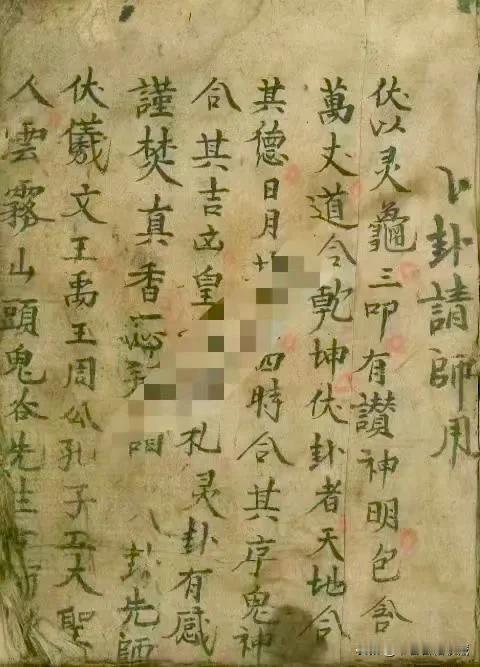 卜卦請師用
伏以灵龜三叩有讃神明包含
萬丈道合乾坤伏卦者天地合
其德日月 四時合其序鬼神
合其吉凶皇 礼灵卦有感
謹焚真香 八卦先師
伏儀文王禹王周公孔子五大聖
人雲霧山頭鬼谷先生